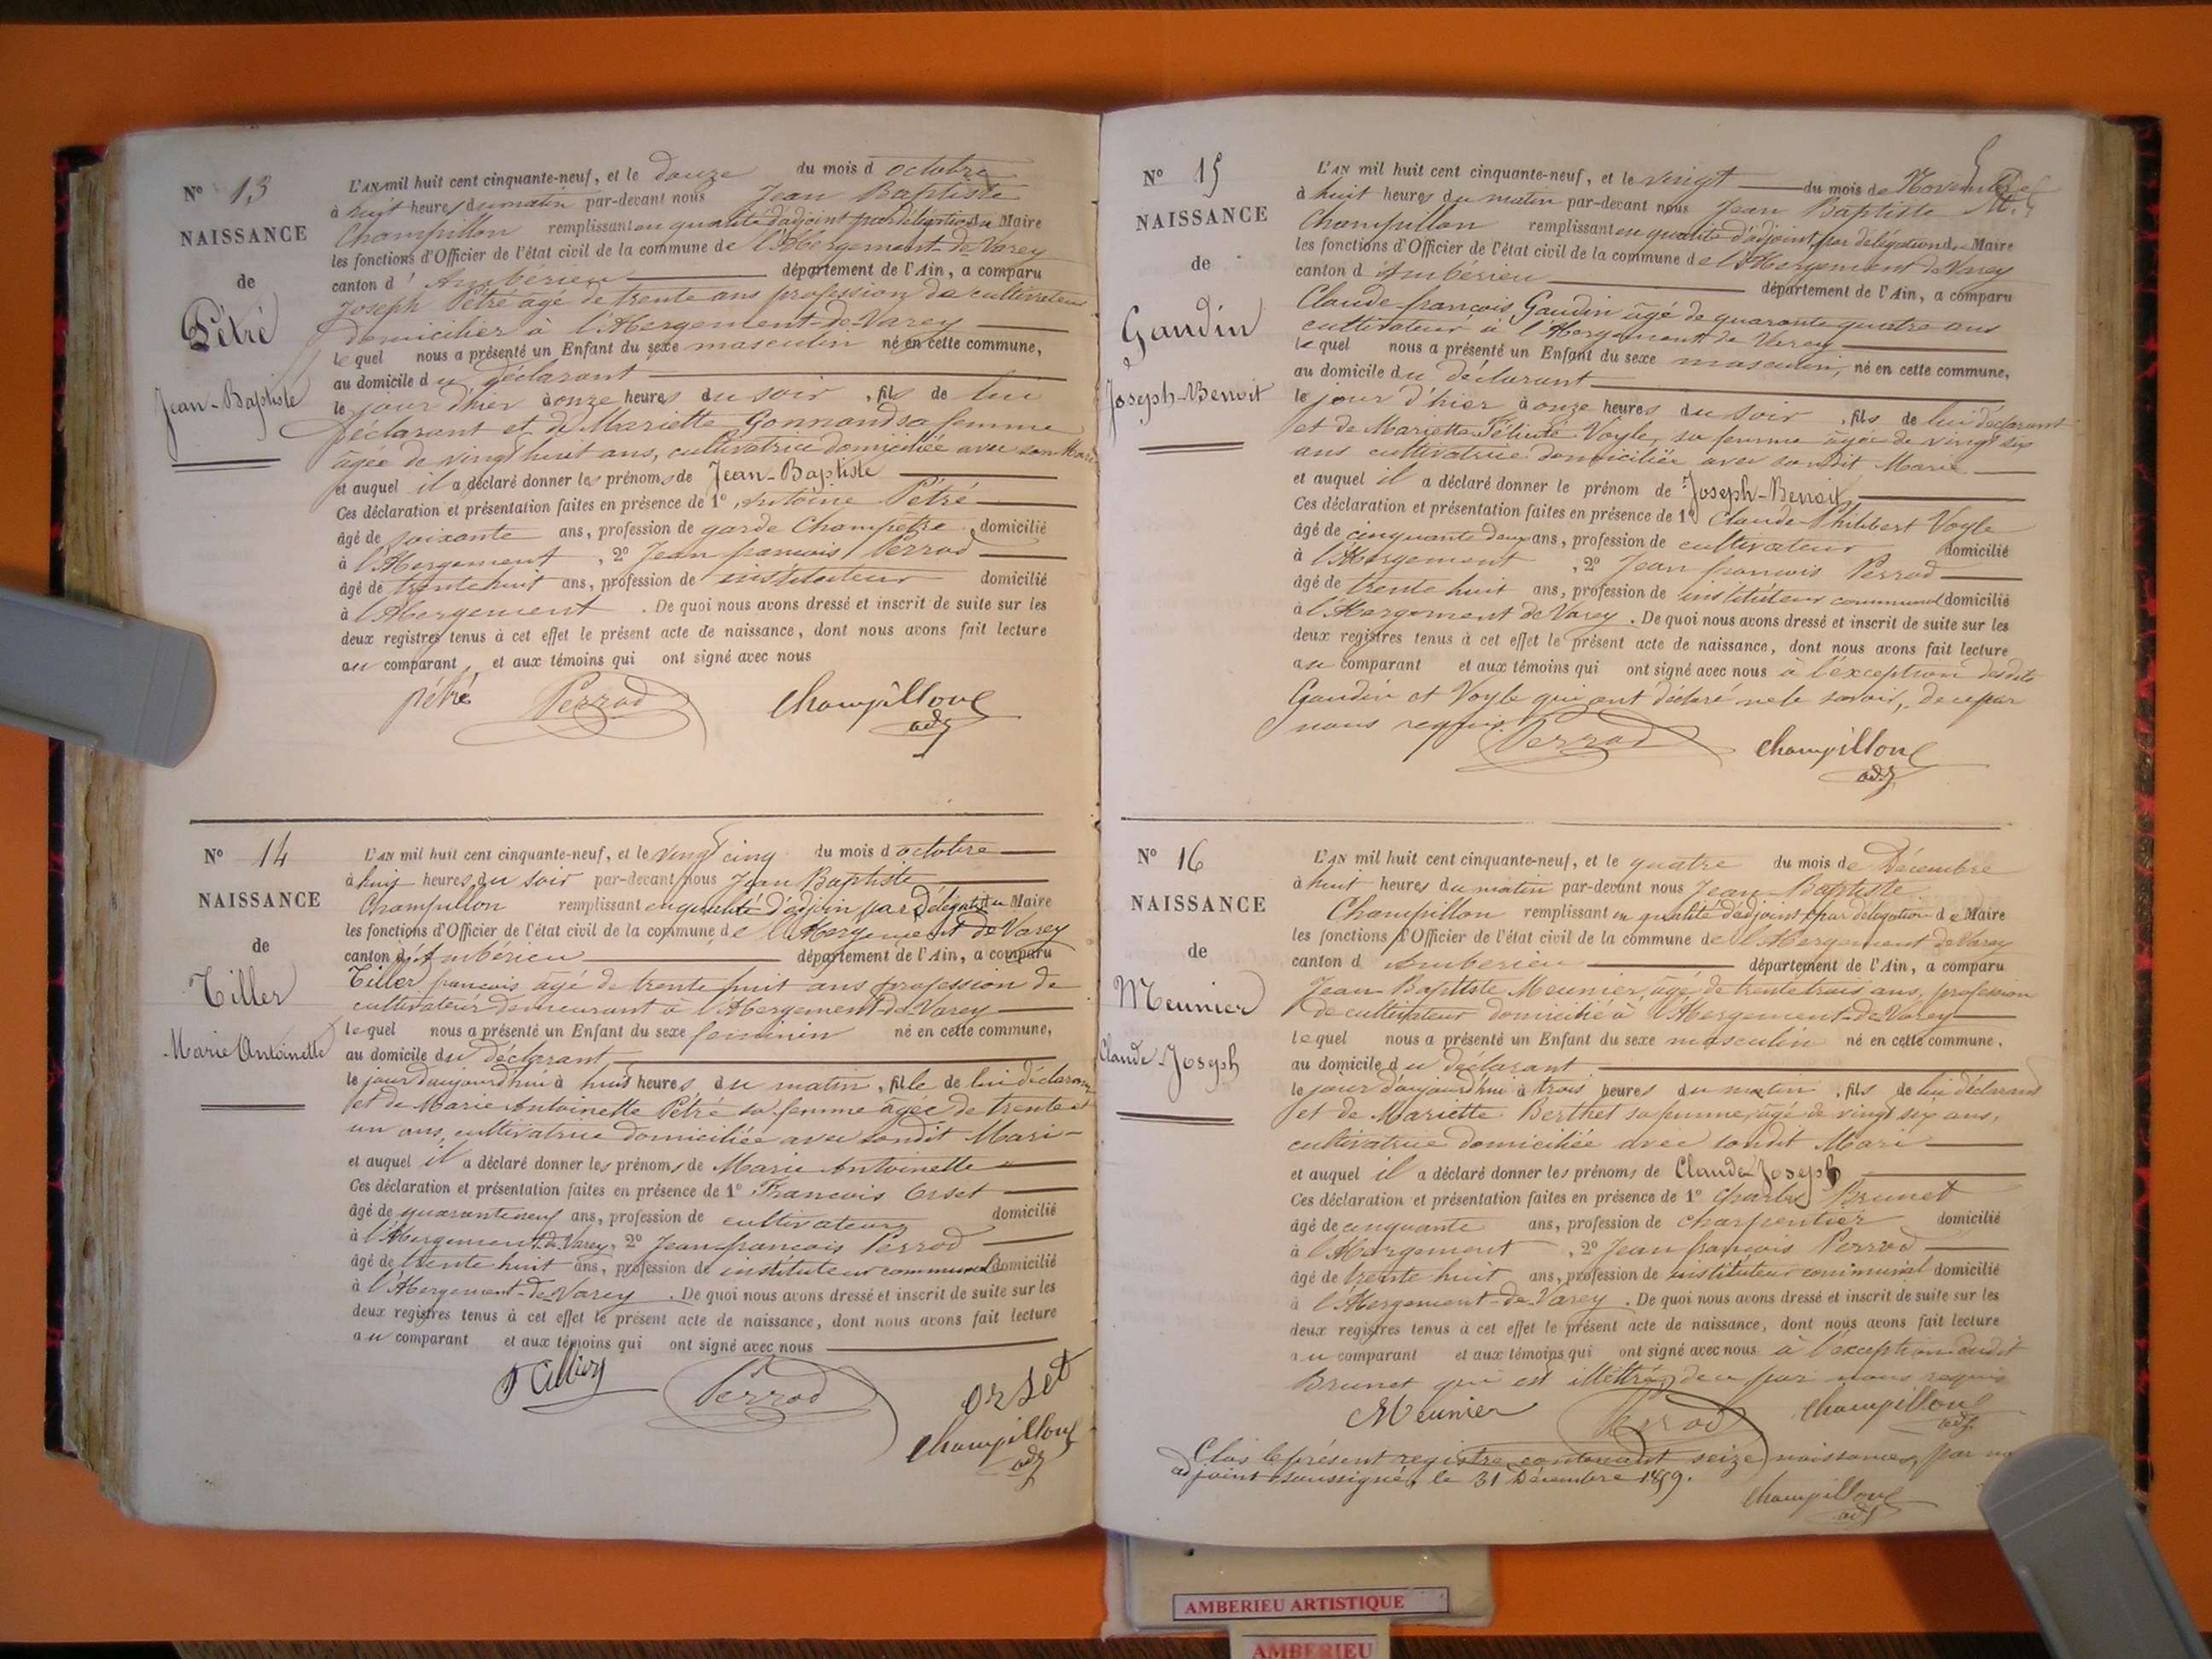 N° 13
NAISSANCE
de
Pétré
Jean-Baptiste
L'AN mil huit cent cinquante-neuf, et le douze du mois d octobre
à huit heures du matin par-devant nous Jean Baptiste
Champillon remplissant en qualité d'adjoint par délégation du Maire
les fonctions d'Officier de l'état civil de la commune de l'Abergement-de-Varey
canton d' Ambérieu département de l'Ain, a comparu
Joseph Pétré agé de trente ans profession de cultivateur
domicilier à l'Abergement-de-Varey
lequel nous a présenté un Enfant du sexe masculin né en cette commune,
au domicile du déclarant
le jour d'hier à onze heures du soir, fils de lui
déclarant et de Mariette Gonnand sa femme
âgée de vingt huit ans, cultivatrice domiciliée avec son Mari
et auquel il a déclaré donner les prénoms de Jean-Baptiste
Ces déclaration et présentation faites en présence de 1° Antoine Pétré
âgé de soixante ans, profession de garde Champêtre, domicilié
à l'Abergement, 2° Jean francois Perrod
âgé de trente huit ans, profession de instituteur domicilié
à l'Abergement. De quoi nous avons dressé et inscrit de suite sur les
deux registres tenus à cet effet le présent acte de naissance, dont nous avons fait lecture
au comparant, et aux témoins qui ont signé avec nous
pétré Perrod Champillon
adj
N° 14
NAISSANCE
de
Tiller
Marie Antoinette
L'AN mil huit cent cinquante-neuf, et le vingt cinq du mois d octobre
à huit heures du soir par-devant nous Jean Baptiste
Champillon remplissant en qualité d'adjoin par Délégation du Maire
les fonctions d'Officier de l'état civil de la commune de l'Abergement de Varey
canton d'Ambérieu département de l'Ain, a comparu
Tiller francois âgé de trente huit ans profession de
cultivateur demeurant à l'Abergement-de-Varey
lequel nous a présenté un Enfant du sexe feminin né en cette commune,
au domicile du déclarant
le jour d'aujourd'hui à huit heures du matin, fille de lui déclarant
et de Marie Antoinette Pétré sa femme âgée de trente et
un ans, cultivatrice domiciliée avec sondit Mari-
et auquel il a déclaré donner les prénoms de Marie Antoinette
Ces déclaration et présentation faites en présence de 1° Francois Orset
âgé de quarante neuf ans, profession de cultivateur domicilié
à l'Abergement-de-Varey, 2° Jean francois Perrod
âgé de trente huit ans, profession de instituteur communal domicilié
à l'Abergement-de-Varey. De quoi nous avons dressé et inscrit de suite sur les
deux registres tenus à cet effet le présent acte de naissance, dont nous avons fait lecture
au comparant et aux témoins qui ont signé avec nous
Perrod orset
Champillon
adj
N° 15
NAISSANCE
de
Gaudin
Joseph-Benoit
L'AN mil huit cent cinquante-neuf, et le vingt du mois de Novembre
à huit heures du matin par-devant nous Jean Baptiste
Champillon remplissant en qualité d'adjoint par délégation du Maire
les fonctions d'Officier de l'état civil de la commune de l'Abergement de Varey
canton d Ambérieu département de l'Ain, a comparu
Claude-francois Gaudin âgé de quarante quatre ans
cultivateur à l'Abergement de Varey
lequel nous a présenté un Enfant du sexe masculin, né en cette commune,
au domicile du déclarant
le jour d'hier à onze heures du soir, fils de lui déclarant
et de Mariette Voyle, sa femme âgée de vingt six
ans cultivatrice domiciliée avec sondit Marie
et auquel il a déclaré donner le prénom de Joseph-Benoit
Ces déclaration et présentation faites en présence de 1° Claude-Philibert Voyle
âgé de cinquante deux ans, profession de cultivateur domicilié
à l'Abergement, 2° Jean francois Perrod
âgé de trente huit ans, profession de instituteur communal domicilié
à l'Abergement de Varey. De quoi nous avons dressé et inscrit de suite sur les
deux registres tenus à cet effet le présent acte de naissance, dont nous avons fait lecture
au comparant et aux témoins qui ont signé avec nous à l'exception desdits
Gaudin et Voyle qui ont déclaré ne le savoir, de ce par
nous requis.
Perrod Champillon
adj
N° 16
NAISSANCE
de
Meunier
Claude-Joseph
L'AN mil huit cent cinquante-neuf, et le quatre du mois de Décembre
à huit heures du matin par-devant nous Jean-Baptiste
Champillon remplissant en qualité d'adjoint par délégation de Maire
les fonctions d'Officier de l'état civil de la commune de l'Abergement de Varey
canton d Amberieu département de l'Ain, a comparu
Jean-Baptiste Meunier, âgé de trente trois ans, profession
de cultivateur domicilié à l'Abergement-de-Varey
lequel nous a présenté un Enfant du sexe masculin né en cette commune,
au domicile du déclarant
le jour d'aujourd'hui à trois heures du matin, fils de lui déclarant
et de Mariette Berthet sa femme, âgé de vingt six ans,
cultivatrice domiciliée avec sondit Mari
et auquel il a déclaré donner les prénoms de Claude Joseph
Ces déclaration et présentation faites en présence de 1° Charles Brunet
âgé de cinquante ans, profession de charpentier domicilié
à l'Abergement, 2° Jean francois Perrod
âgé de trente huit ans, profession de instituteur communal domicilié
à l'Abergement-de-Varey. De quoi nous avons dressé et inscrit de suite sur les
deux registres tenus à cet effet le présent acte de naissance, dont nous avons fait lecture
au comparant et aux témoins qui ont signé avec nous à l'exception dudit
Brunet qui est illettré, de ce par nous requis
Meunier Perrod Champillon
adj
Clos le présent registre contenant seize naissances, par
adjoint soussigné, le 31 Décembre 1859.
Champillon
adj
AMBERIEU ARTISTIQUE
AMBERIEU